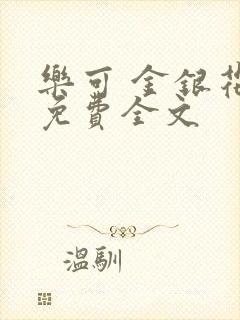 樂可 金銀花
免費全文
溫馴